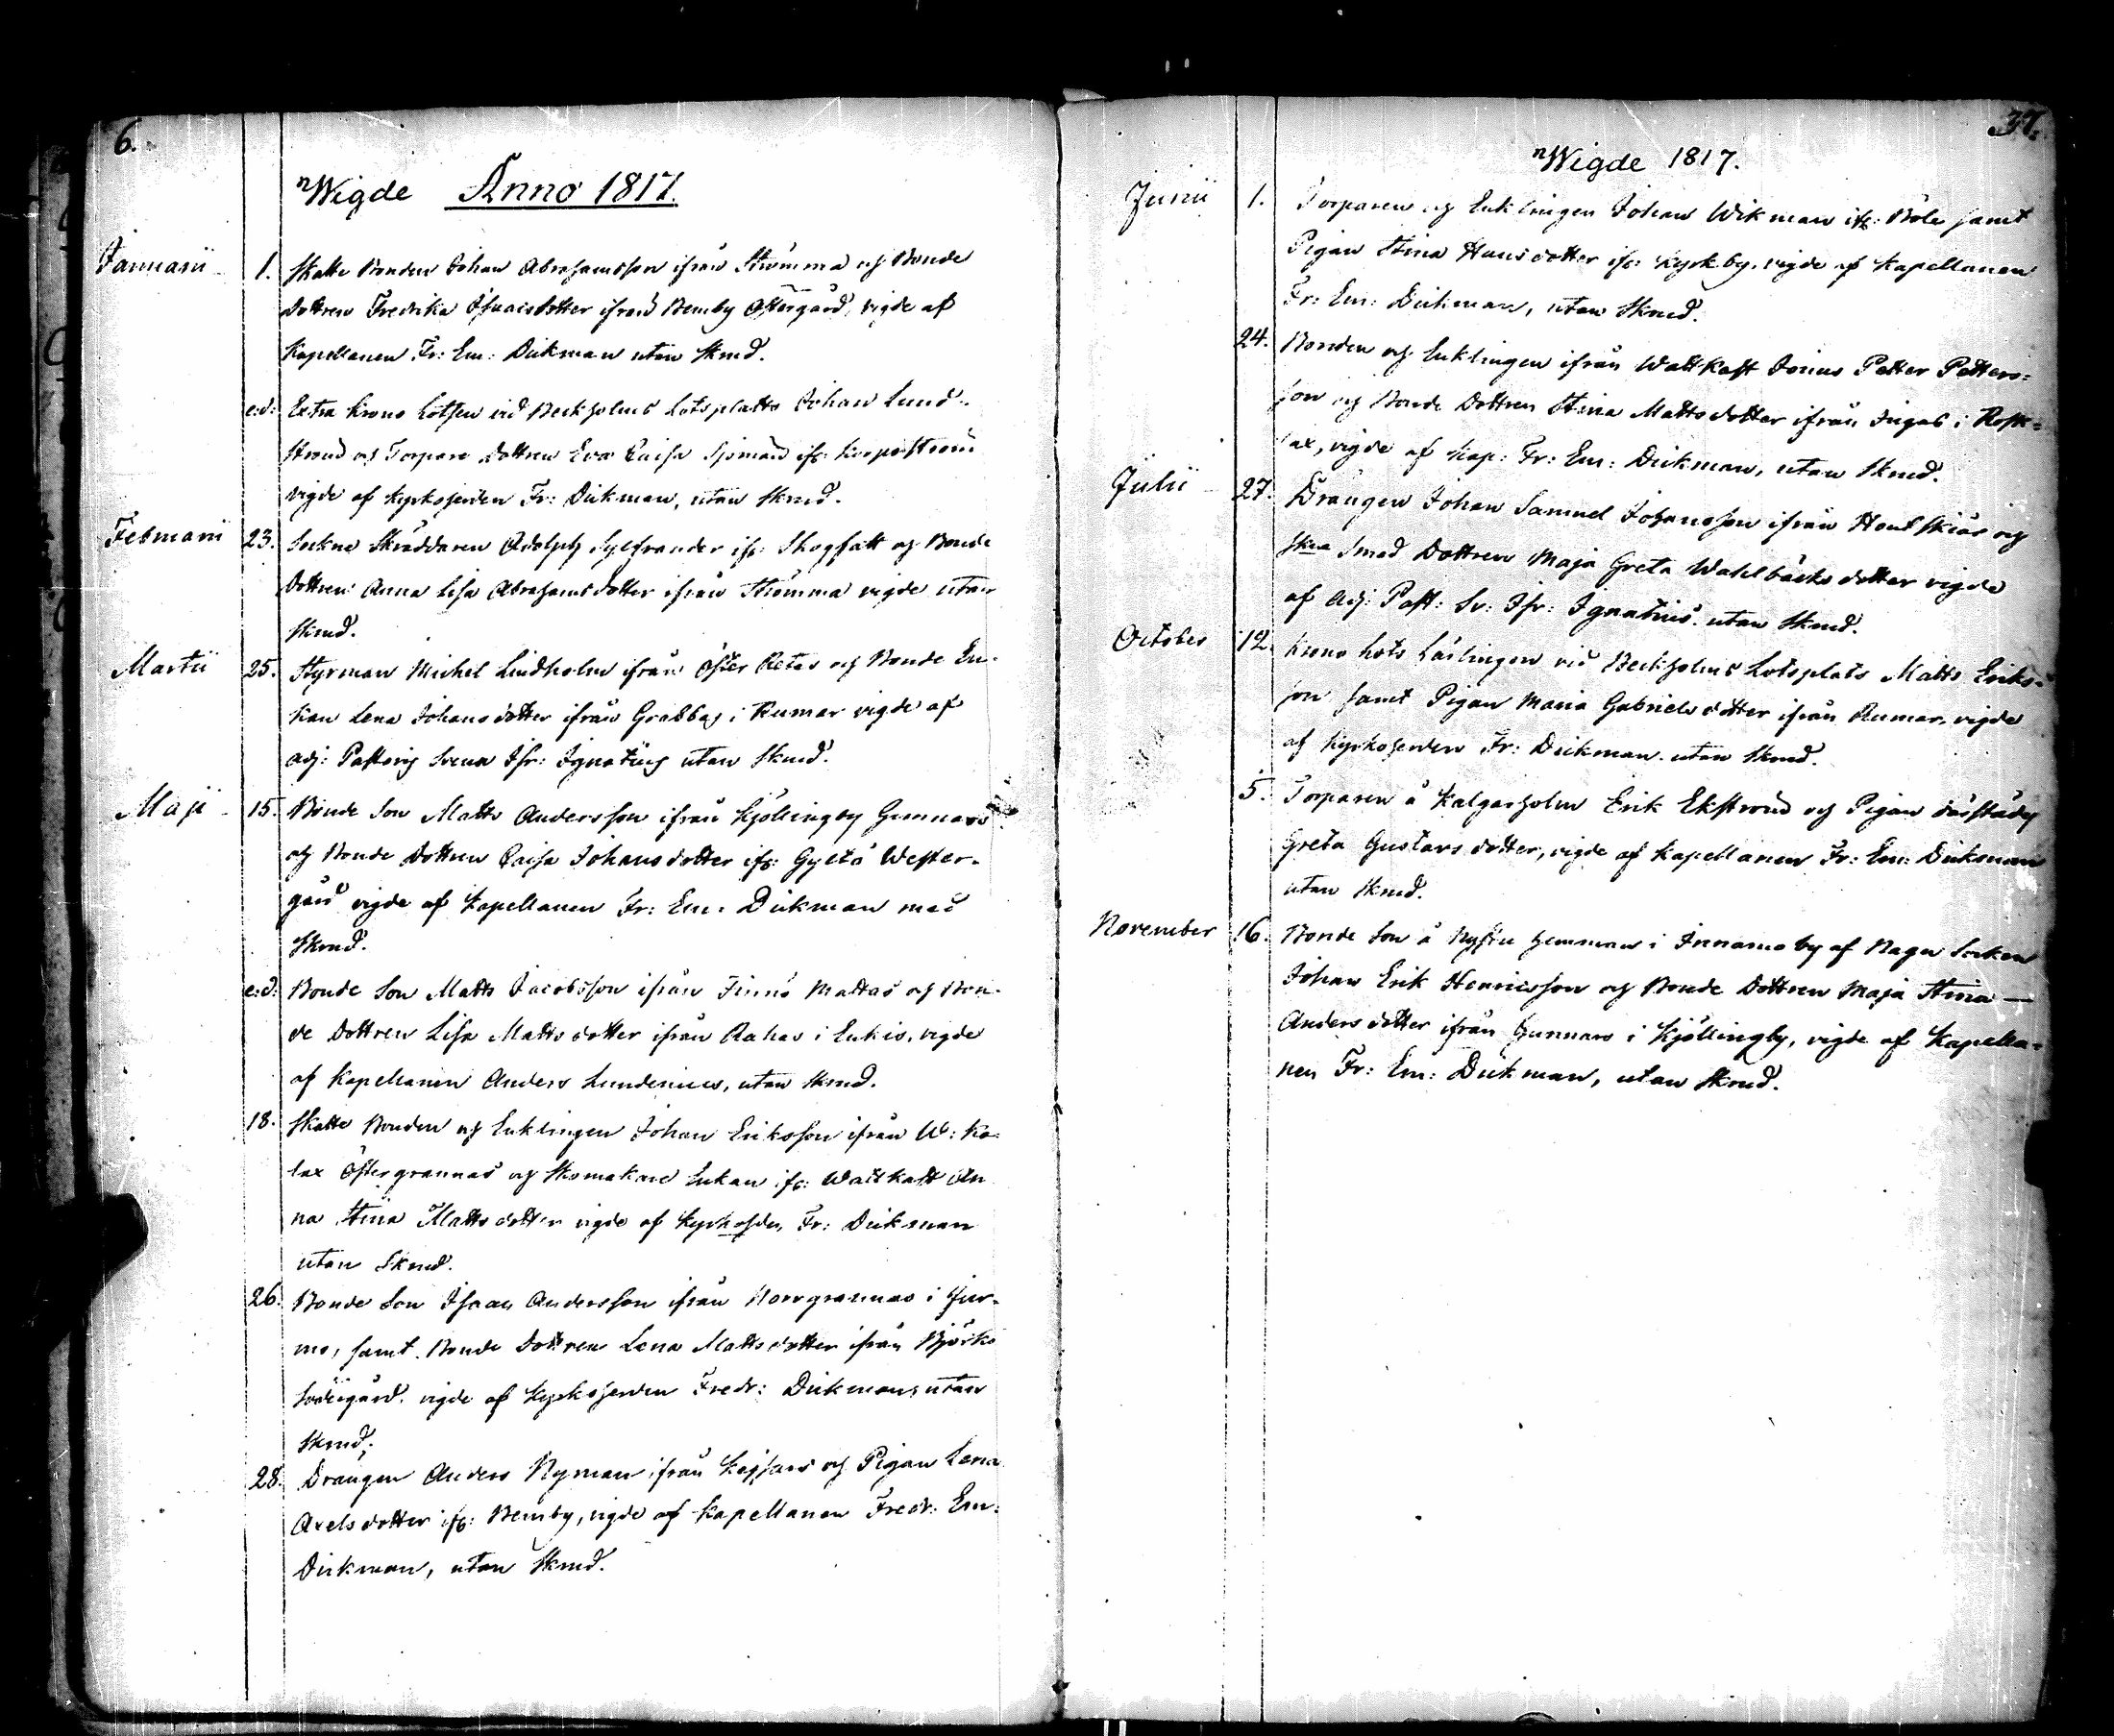 6.
Wigde Anno 1817.
Januarii 1. Skatte Bonden Johan Abrahamsson ifrån Strömma och Bonde
dottren Fredrika Isaacsdotter ifrån Bensby Östergård, vigde af
Kapellanen Fr: Em: Dickman utan Skrud.
e:d: Extra Krono Lotsen vid Berkholms Lotsplatts Johan Lund-
strand och Torpare dottren Eva Caisa Sjöman ifr: Korpoström
vigde af Kyrkoherden Fr: Dickman, utan Skrud.
Februarii 23. Sockne Skräddaren Adolph Sylfvander ifr: Skogsatt och Bonde
Dottren Anna Lisa Abrahamsdotter ifrån Strömma vigde utan
Skrud.
Martii 25. Styrman Michel Lindholm ifrån Öster Retas och Bonde En-
kan Lena Johansdotter ifrån Grabbas i Rumar vigde af
Adj: Pastoris Svens Isr: Ignatius utan Skrud.
Maji 15. Bonde Son Matts Andersson ifrån Kjöllingby Gunnars
och Bonde Dottren Caisa Johansdotter ifr: Gyltö Wester-
gård vigde af Kapellanen Fr: Em: Dickman med
Skrud.
e:d: Bonde Son Matts Jacobsson ifrån Finnö Mattas och Bon-
de Dottren Lisa Mattsdotter ifrån Rakas i Enkis, vigde
af Kapellanen Anders Lundenius, utan Skrud.
18. Skatte Bonden och Enklingen Johan Eriksson ifrån W: Ka-
lax Östergrannas och Skomakare Enkan ifr: Wattkast An
na Stina Mattsdotter vigde af Kyrkohden Fr: Dickman
utan Skrud.
26. Bonde Son Isaac Andersson ifrån Norrgrannas i Jur-
mo, samt Bonde Dottren Lena Mattsdotter ifrån Björkö
Södergård. vigde af Kyrkoherden Fredr: Dickman, utan
Skrud.
28. Drängen Anders Nyman ifrån och Pigan Lena
Axelsdotter ifr: Bensby, vigde af Kapellanen Fredr: Em:
Dickman, utan Skrud.
37.
Wigde 1817.
Junii 1. Torparen och Enklingen Johan Wikman ifr: Böle samt
Pigan Stina Hansdotter ifr: Kyrkby, vigde af Kapellanen
Fr: Em: Dickman, utan Skrud.
24. Bonden och Enklingen ifrån Wattkast Jonus Petter Petters-
son och Bonde Dottren Stina Mattsdotter ifrån Ingas i Rosk-
lax, vigde af Kap: Fr: Em: Dickman, utan Skrud.
Julii 27. Drängen Johan Samuel Johansson ifrån Houtskiär och
Skna Smed Dottren Maja Greta Wahlbäcksdotter vigde
af Adj: Past: Sv: Isr: Ignatius utan Skrud.
October 12. Krono Lots Lärlingen vid Berkholms Lotsplats Matts Eriks-
son samt Pigan Maria Gabrielsdotter ifrån Rumar, vigde
af Kyrkoherden Fr: Dickman utan Skrud.
5. Torparen å Kalgarholm Erik Ekstrand och Pigan därstädes
Greta Gustavsdotter, vigde af Kapellanen Fr: Em: Dickman
utan Skrud.
November 16. Bonde Son å Nystu hemman i Innamo by af Nagu Socken
Johan Erik Henricsson och Bonde Dottren Maja Stina —
Andersdotter ifrån Gunnars i Kjöllingby, vigde af Kapella-
nen Fr: Em: Dickman, utan Skrud.